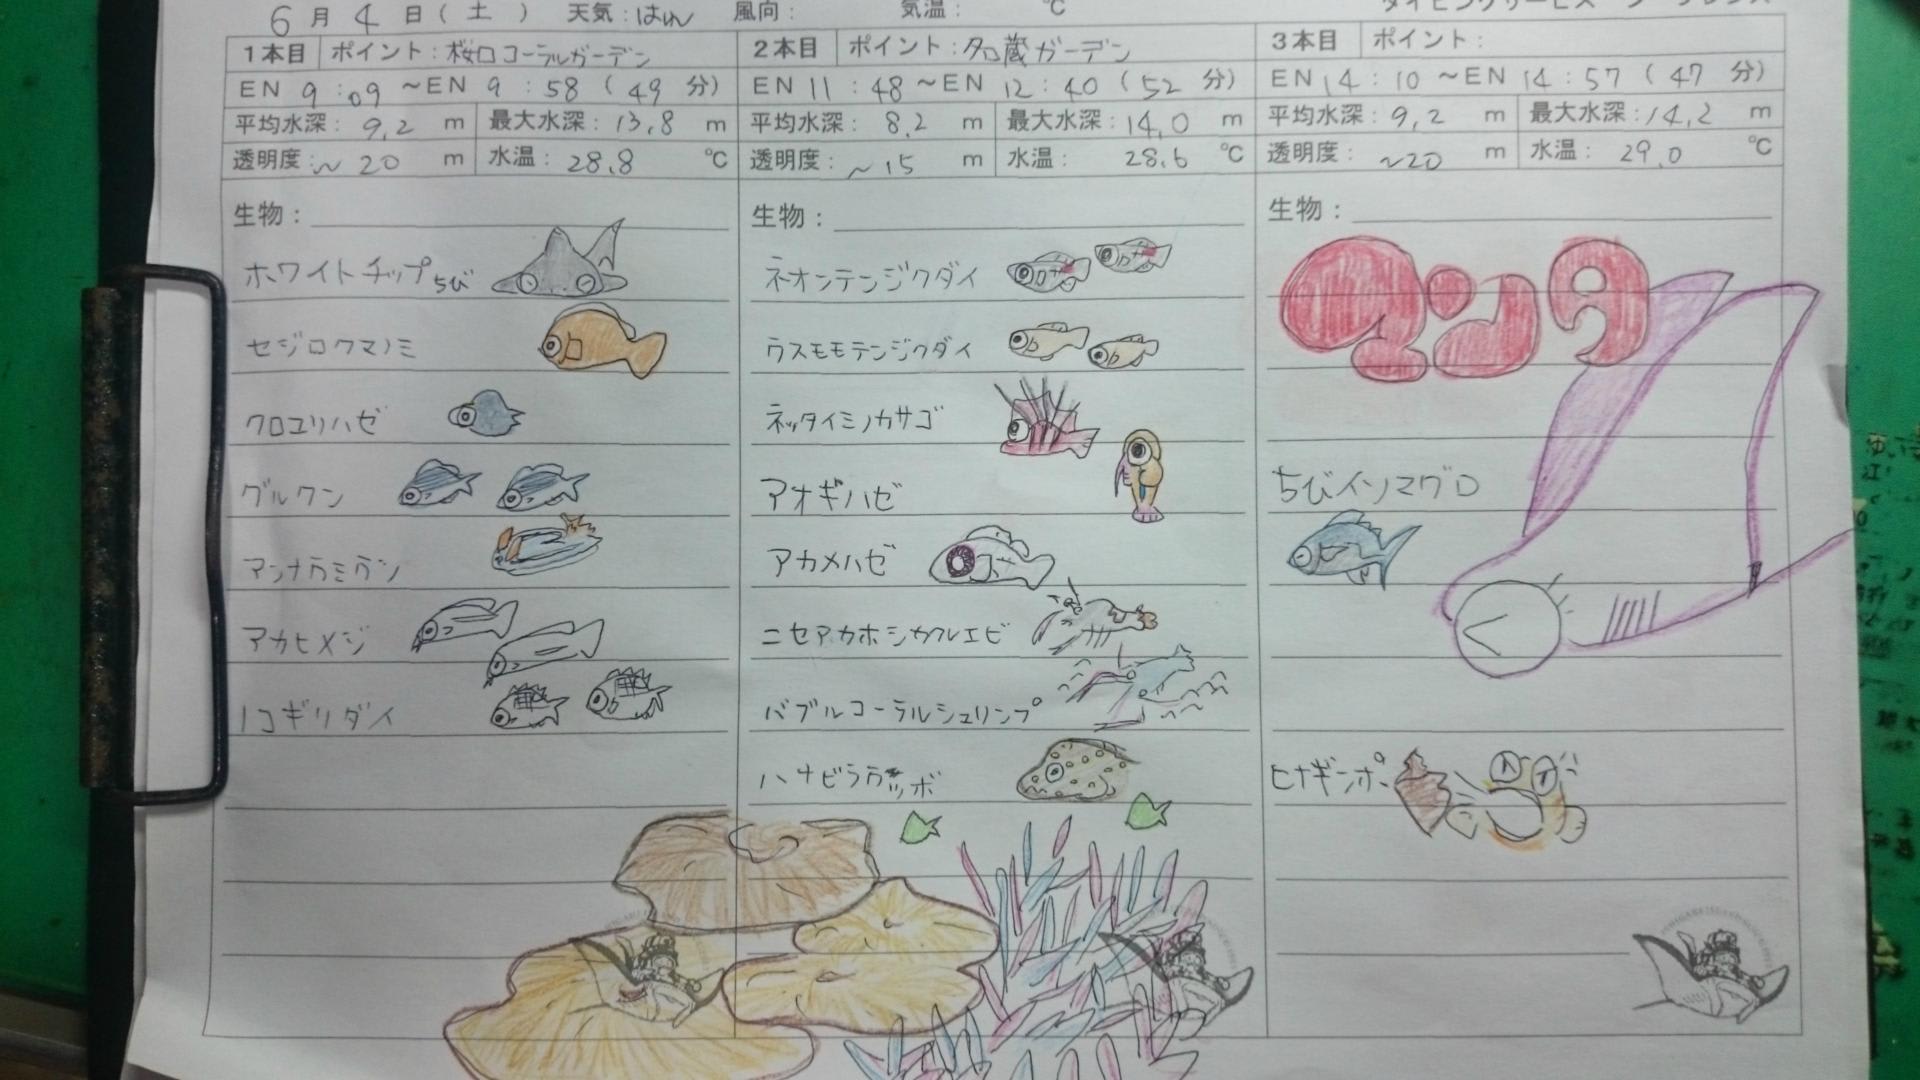 6月4日(土) 天気:はれ 風向: 気温: ℃
1本目 ポイント:桜口コーラルガーデン
EN 9:09 ~EN 9:58 (49分)
平均水深: 9,2 m 最大水深: 13,8 m
透明度: ~20 m 水温: 28,8 ℃
生物:
ホワイトチップちび
セジロクマノミ
クロユリハゼ
グルクン
アンナウミウシ
アカヒメジ
ノコギリダイ
2本目 ポイント:名蔵ガーデン
EN 11:48 ~EN 12:40 (52分)
平均水深: 8,2 m 最大水深: 14,0 m
透明度: ~15 m 水温: 28,6 ℃
生物:
ネオンテンジクダイ
ウスモモテンジクダイ
ネッタイミノカサゴ
アオギハゼ
アカメハゼ
ニセアカホシカクレエビ
バブルコーラルシュリンプ
ハナビラウツボ
3本目 ポイント:
EN 14:10 ~EN 14:57 (47分)
平均水深: 9,2 m 最大水深: 14,2 m
透明度: ~20 m 水温: 29,0 ℃
生物:
マンタ
ちびイソマグロ
ヒナギンポ